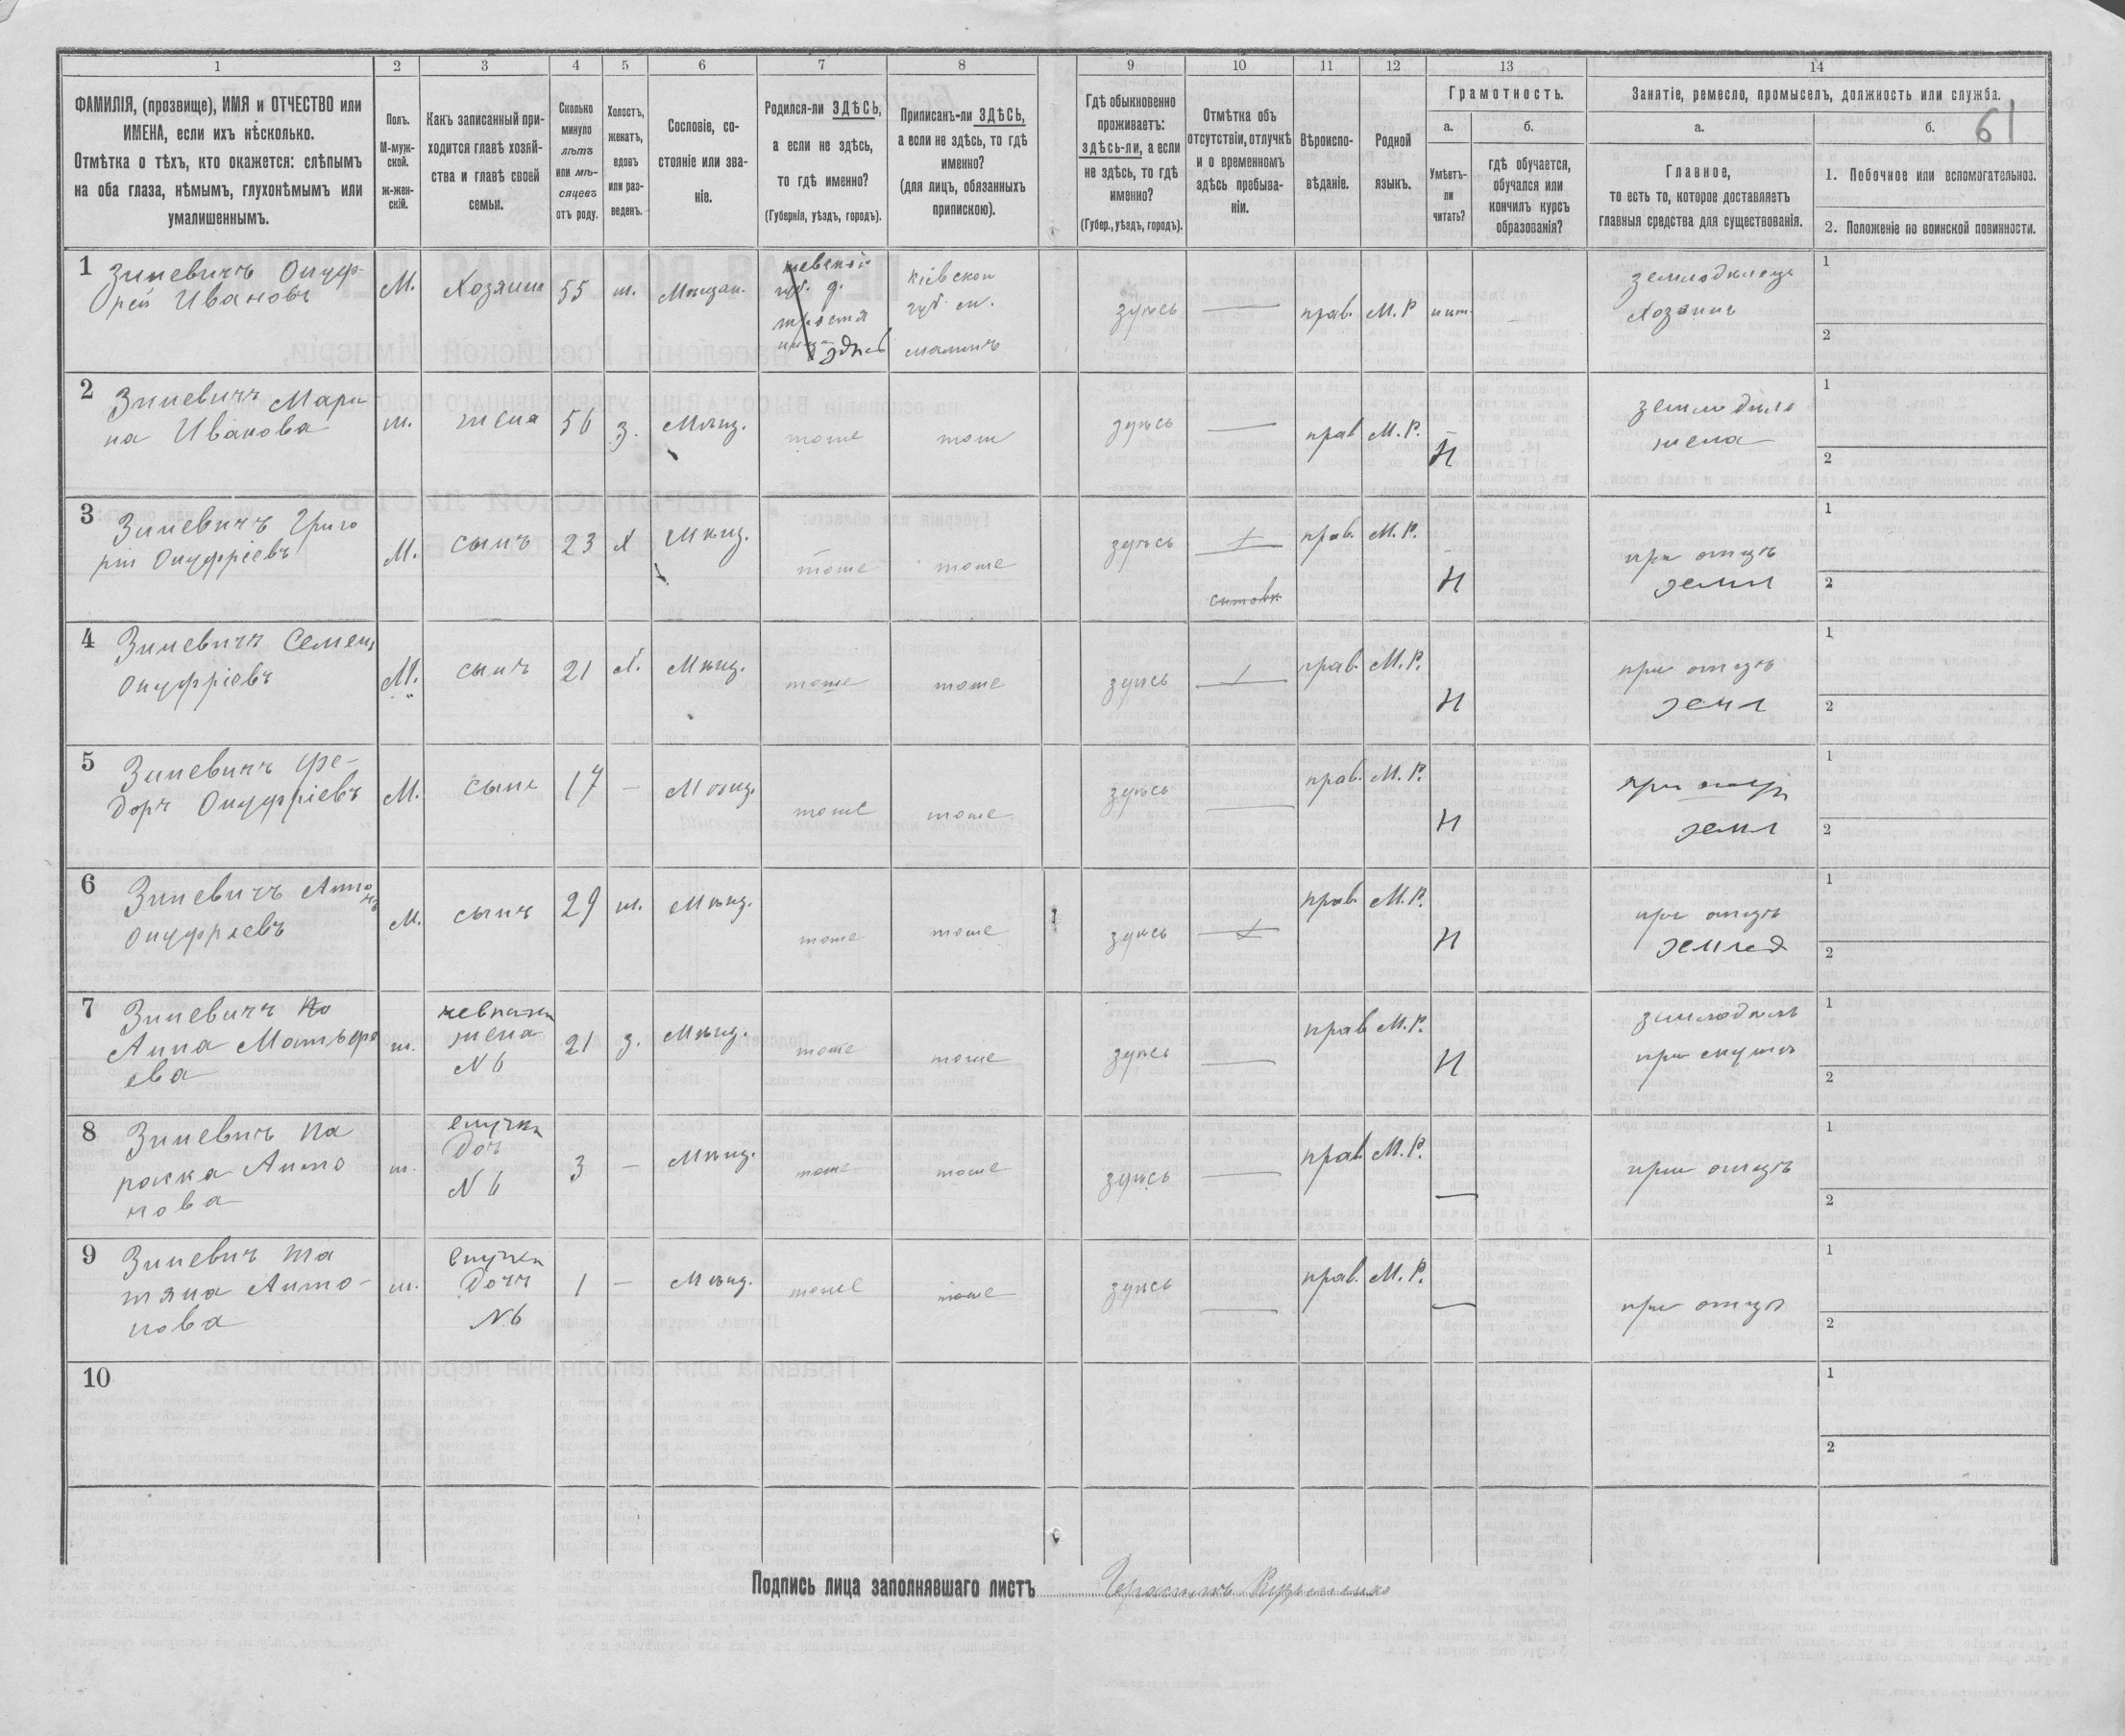 1
2
3
4
5
6
7
8
9
10
11
12
13
14
61
ФАМИЛІЯ, (прозвище), ИМЯ и ОТЧЕСТВО или
ИМЕНА, если ихъ нѣсколько.
Отмѣтка о тѣхъ, кто окажется: слѣпымъ
на оба глаза, нѣмымъ, глухонѣмымъ или
умалишеннымъ.
Полъ.
М-муж-
ской.
ж-жен-
скій.
Какъ записанный при-
ходится главѣ хозяй-
ства и главѣ своей
семьи.
Сколько
минуло
лѣтъ
или мѣ-
сяцевъ
отъ роду.
Холостъ,
женатъ,
вдовъ
или раз-
веденъ.
Сословіе, со-
стояніе или зва-
ніе.
Родился-ли ЗДѢСЬ,
а если не здѣсь,
то гдѣ именно?
(Губернія, уѣздъ, городъ).
Приписанъ-ли ЗДѢСЬ,
а если не здѣсь, то гдѣ
именно?
(для лицъ, обязанныхъ
припискою).
Гдѣ обыкновенно
проживаетъ:
здѣсь-ли, а если
не здѣсь, то гдѣ
именно?
(Губер., уѣздъ, городъ).
Отмѣтка объ
отсутствіи, отлучкѣ
и о временномъ
здѣсь пребыва-
ніи.
Вѣроиспо-
вѣданіе.
Родной
языкъ.
Грамотность.
а.
Умѣетъ-
ли
читать?
б.
гдѣ обучается,
обучался или
кончилъ курсъ
образованія?
Занятіе, ремесло, промыселъ, должность или служба.
а.
Главное,
то есть то, которое доставляетъ
главныя средства для существованія.
б.
1. Побочное или вспомогательное.
2. Положеніе по воинской повинности.
1 Зиневичъ Онуф-
рей Ивановъ
М.
Хозяинъ
55
ж.
Мещан.
здѣсь
Кіевской
губ. м.
малинъ
здѣсь
—
прав.
М.Р
—
земледѣлецъ
Хозяинъ
1
2
2 Зиневичъ Мари
на Иванова
ж.
жена
56
з.
Мѣщ.
тоже
тож
здѣсь
—
прав
М.Р.
Н
земледѣле
жена
1
2
3 Зиневичъ Григо
рій Онуфріевъ
М.
сынъ
23
Х
Мѣщ.
тоже
тоже
здѣсь
прав.
М.Р.
Н
при отцѣ
земл
1
2
4 Зиневичъ Семенъ
Онуфріевъ
М.
сынъ
21
Х.
Мѣщ.
тоже
тоже
здѣсь
прав.
М.Р.
Н
при отцѣ
земл
1
2
5 Зиневичъ Фе-
доръ Онуфріевъ
М.
сынъ
17
—
Мѣщ.
тоже
тоже
здѣсь
—
прав.
М.Р.
Н
при отцѣ
земл
1
2
6 Зиневичъ Антонъ
Онуфріевъ
М.
сынъ
29
ж.
Мѣщ.
тоже
тоже
здѣсь
прав.
М.Р.
Н
при отцѣ
землед
1
2
7 Зиневичъ
Анна Матьфе
ева
ж.
невѣстка
жена
N 6
21
з.
Мѣщ.
тоже
тоже
здѣсь
—
прав
М.Р.
Н
земледѣль
при мужѣ
1
2
8 Зиневичъ Па
раска Анто
нова
ж.
внучка
доч
N 6
3
—
Мѣщ.
тоже
тоже
здѣсь
—
прав.
М.Р.
—
при отцѣ
1
2
9 Зиневич Та
тяна Анто-
нова
ж.
внучка
дочъ
N.6
1
—
Мѣщ.
тоже
тоже
здѣсь
—
прав.
М.Р.
—
при отцѣ
1
2
10
1
2
Подпись лица заполнявшаго листъ